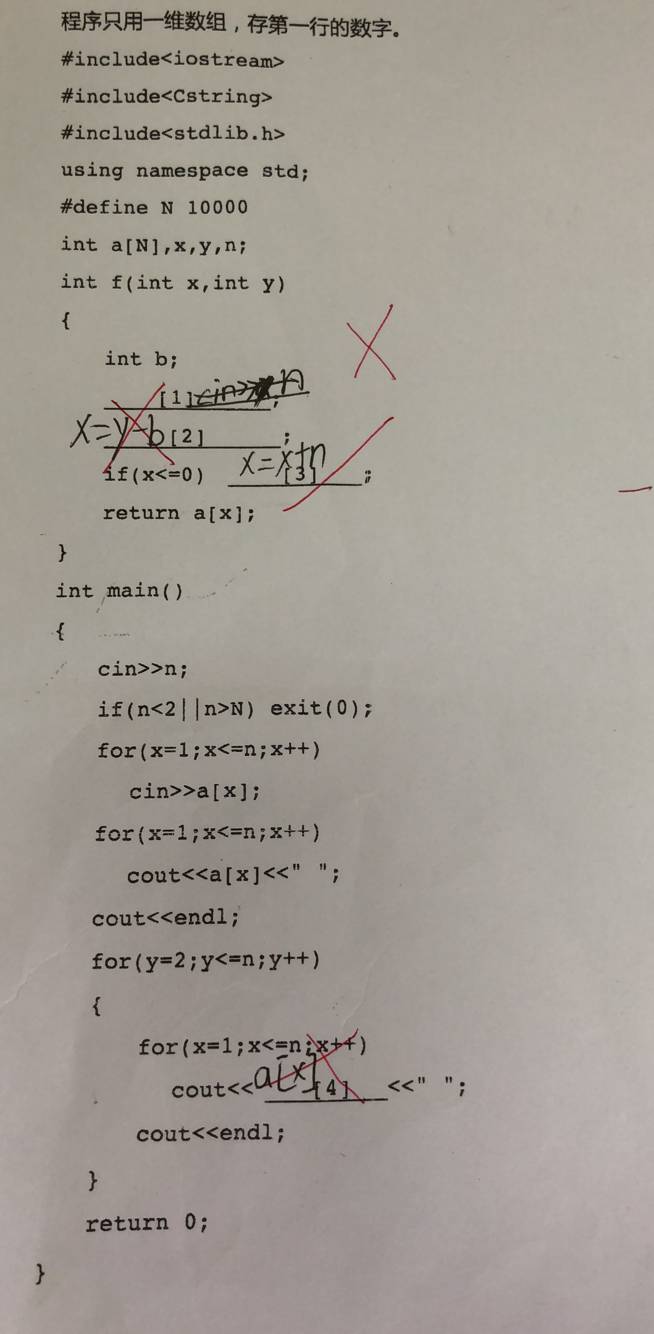 程序只用一维数组，存第一行的数字。
#include<iostream>
#include<Cstring>
#include<stdlib.h>
using namespace std;
#define N 10000
int a[N],x,y,n;
int f(int x,int y)
{
int b;
[1] cin>> n ;
x=y-b [2] ;
if(x<=0) x=x+n [3] ;
return a[x];
}
int main()
{
cin>>n;
if(n<2||n>N) exit(0);
for(x=1;x<=n;x++)
cin>>a[x];
for(x=1;x<=n;x++)
cout<<a[x]<<" ";
cout<<endl;
for(y=2;y<=n;y++)
{
for(x=1;x<=n;x++)
cout<< a[x] [4] <<" ";
cout<<endl;
}
return 0;
}